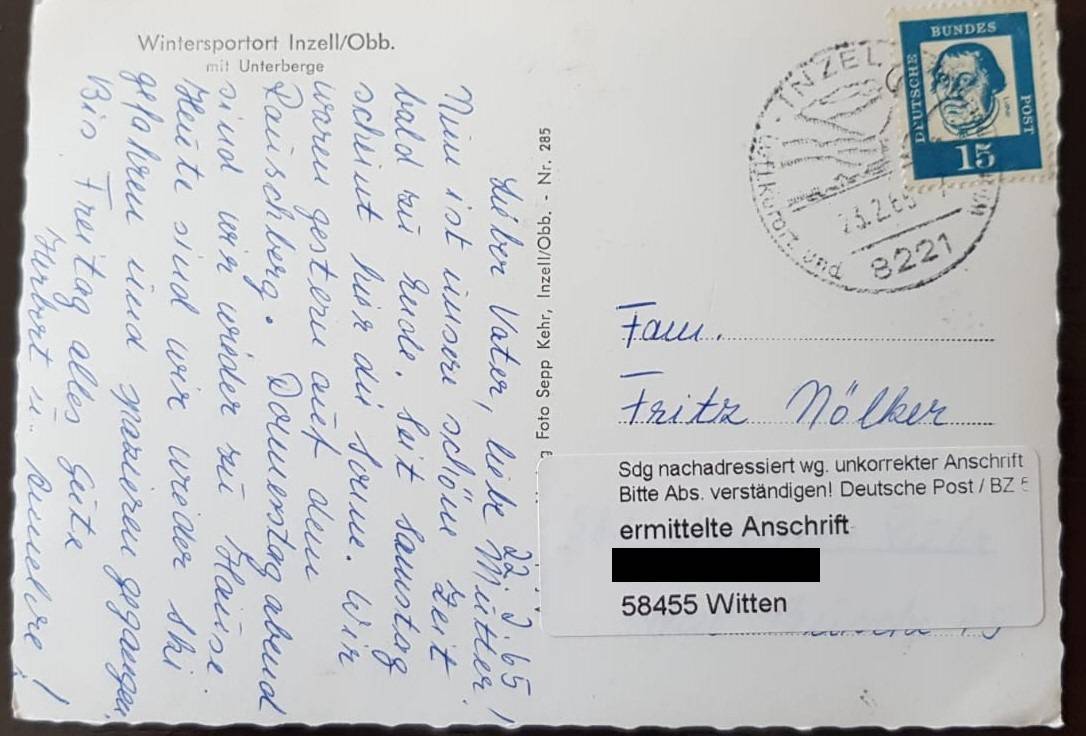 Wintersportort Inzell/Obb.
mit Unterberge
22. 2. 65
Lieber Vater, liebe Mutter!
Nun ist unsere schöne Zeit
bald zu Ende. Seit Samstag
scheint hier die Sonne. Wir
waren gestern auf dem
Rauschberg. Donnerstag abend
sind wir wieder zu Hause.
Heute sind wir wieder Ski
gefahren und spazieren gegangen.
Bis Freitag alles Gute
u. Annehre!
Foto Sepp Kehr, Inzell/Obb. - Nr. 285
INZELL
Luftkurort und
23.2.65
8221
DEUTSCHE BUNDES POST
15
Fam.
Fritz Nölker
Sdg nachadressiert wg. unkorrekter Anschrift
Bitte Abs. verständigen! Deutsche Post / BZ
ermittelte Anschrift
58455 Witten